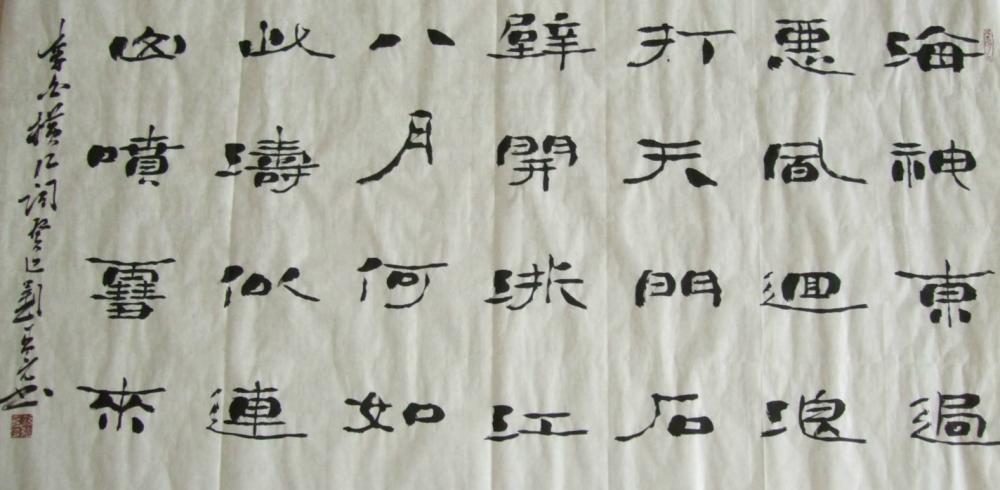 海神東過
惡風迴浪
打天門石
壁開浙江
八月何如
此濤似連
山噴雪來
李白橫江詞癸巳劉